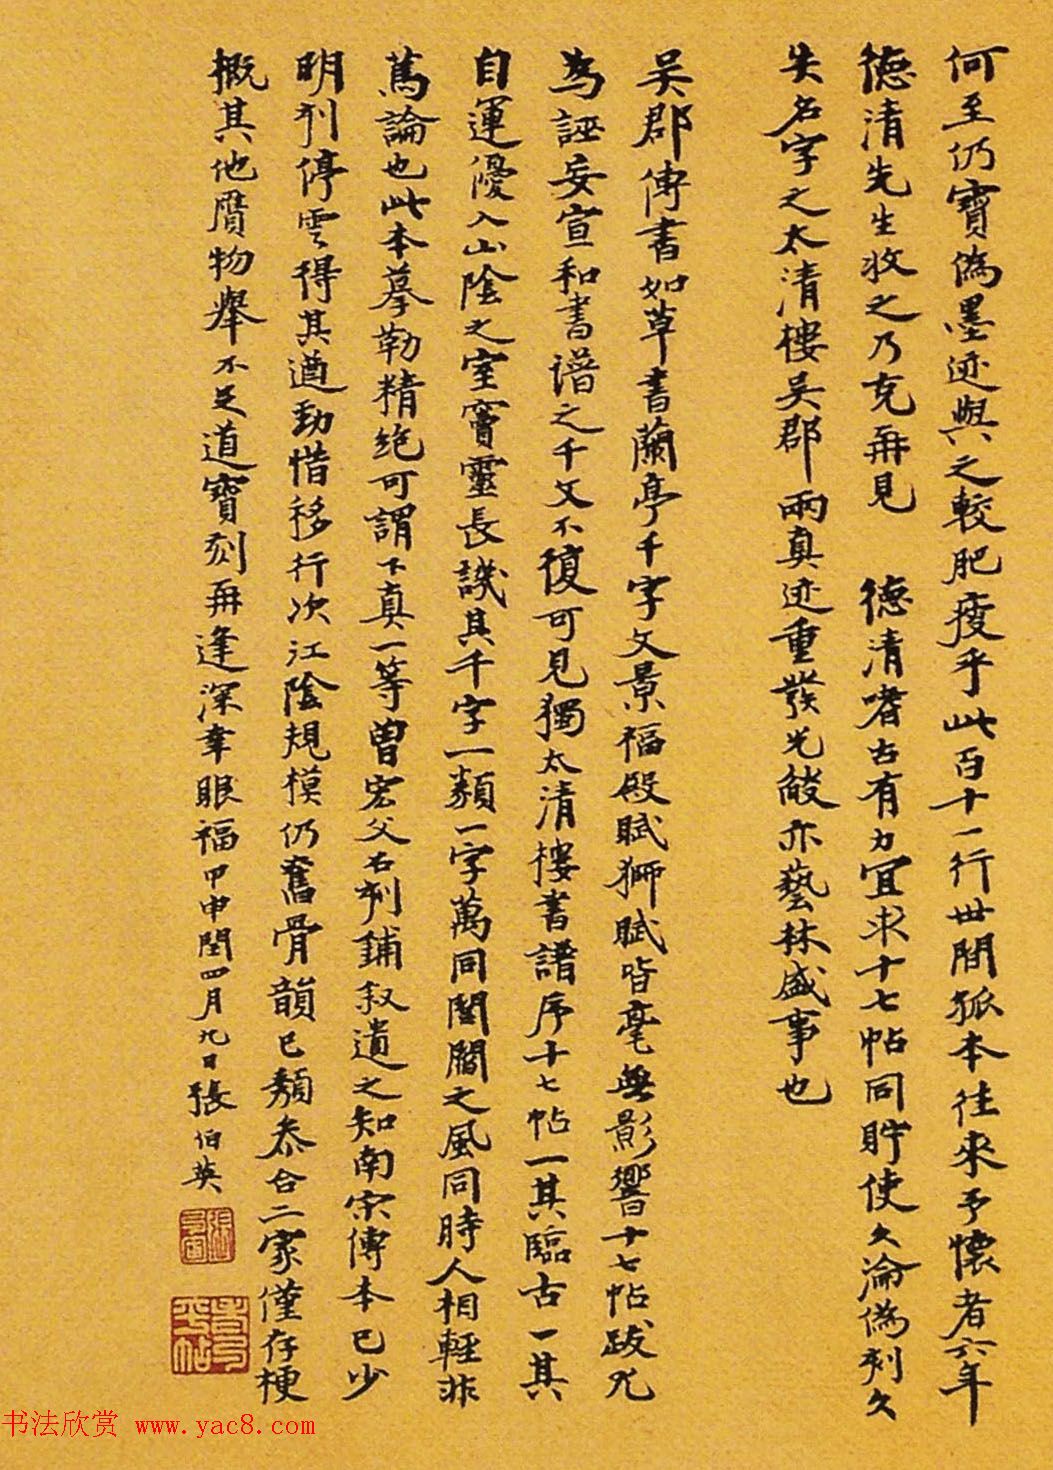 何至仍寶偽墨迹與之較肥瘦乎此百十一行世間孤本往來予懷者六年
德清先生收之乃克再見 德清嗜古有力宜求十七帖同貯使久淪偽刻久
失名字之太清樓吳郡兩真迹重發光燄亦藝林盛事也
吳郡傳書如草書蘭亭千字文景福殿賦獅賦皆毫無影響十七帖跋尤
為誣妄宣和書譜之千文不復可見獨太清樓書譜序十七帖一其臨古一其
自運優入山陰之室竇靈長譏其千字一類一字萬同閭閻之風同時人相輕非
篤論也此本摹勒精絶可謂下真一等曾宏父石刻鋪叙遺之知南宋傳本已少
明刋停雲得其遒勁惜移行次江陰規模仍舊骨韻已頽叅合二家僅存梗
概其他贋物舉不足道寶刻再逢深幸眼福甲申閏四月九日張伯英
书法欣赏 www.yac8.com